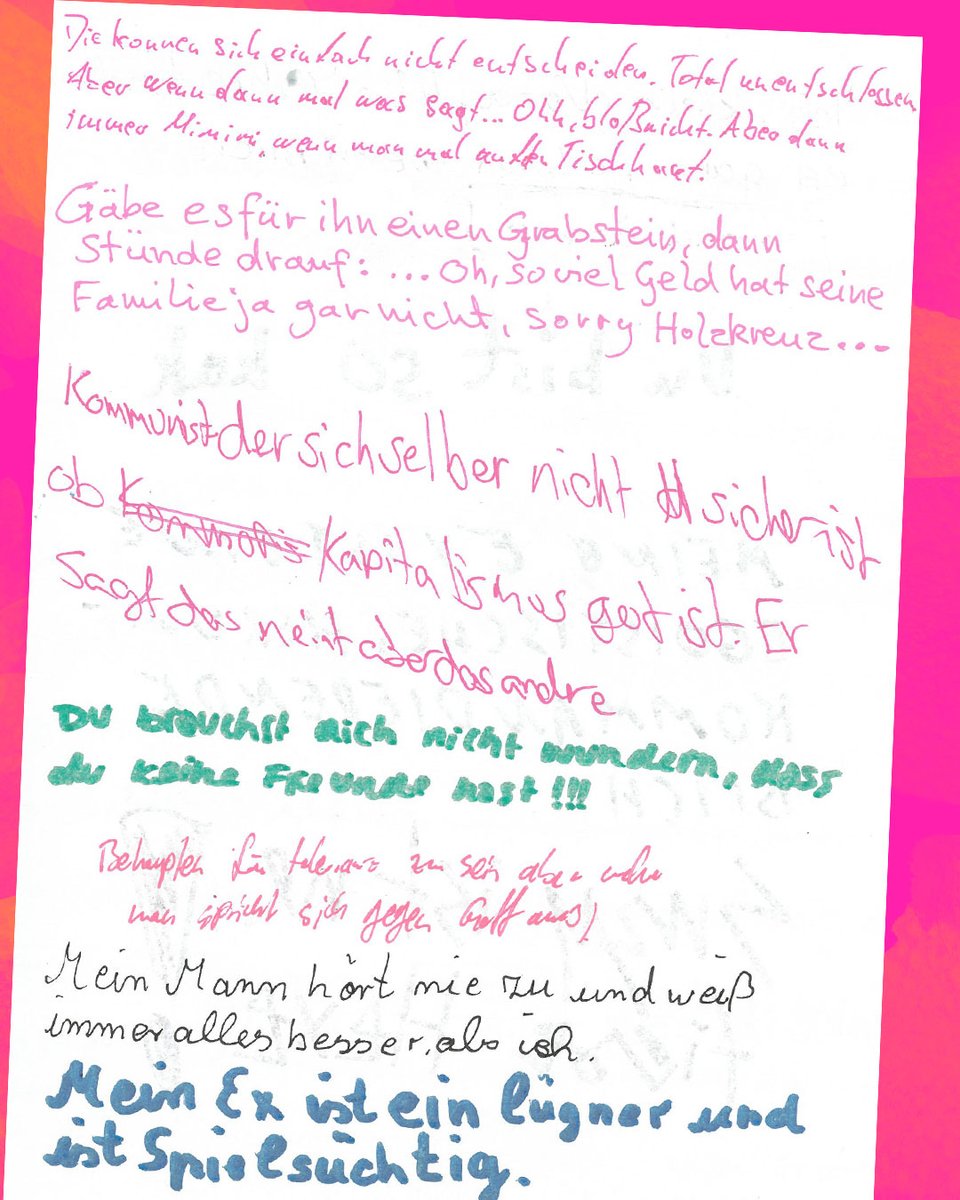 Die können sich einfach nicht entscheiden. Total unentschlossen
Aber wenn dann mal was sagt... Ohh, bloß nicht. Aber dann
immer Mimimi, wenn man mal auf den Tisch haut.
Gäbe es für ihn einen Grabstein, dann
Stünde drauf: ... Oh, so viel Geld hat seine
Familie ja gar nicht, sorry Holzkreuz...
Kommunist der sich selber nicht sicher ist
ob Kapitalismus gut ist. Er
Sagt das neint aber das andre
Du brauchst dich nicht wundern, dass
du keine Freunde hast!!!
Behaupten für zu sein aber
man spricht sich gegen Gott aus!
Mein Mann hört nie zu und weiß
immer alles besser, als ich.
Mein Ex ist ein lügner und
ist Spielsüchtig.